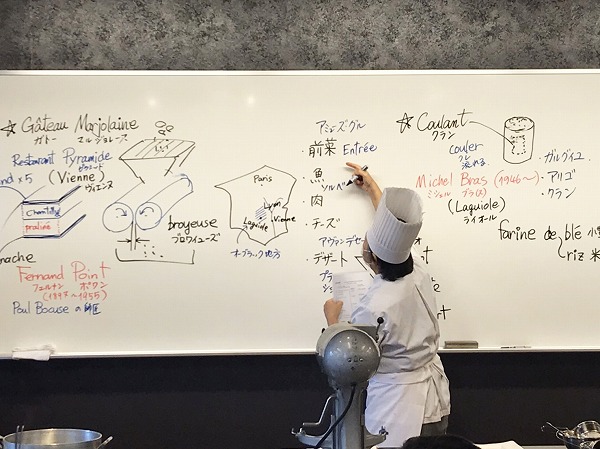 ☆ Gâteau Marjolaine
ガトー マルジョレーヌ
Restaurant Pyramide
ピラミード
(Vienne)
ヴィエンヌ
nd×5
chantilly
praliné
nache
Fernand Point
フェルナン ポワン
(1897〜1955)
Paul Bocuse の師匠
broyeuse
ブロワイユーズ
Paris
Lyon
Vienne
Laguiole
オーブラック地方
アミューズ・グル
・前菜 Entrée
・魚
ソルベ
・肉
・チーズ
アヴァンデセー
・デザート
プラ
☆ Coulant
クラン
couler
クレ
流れる
Michel Bras (1946〜)
ミシェル ブラ(ス)
(Laguiole)
ライオール
・ガルグイユ
・アリゴ
・クラン
farine de blé 小
riz 米